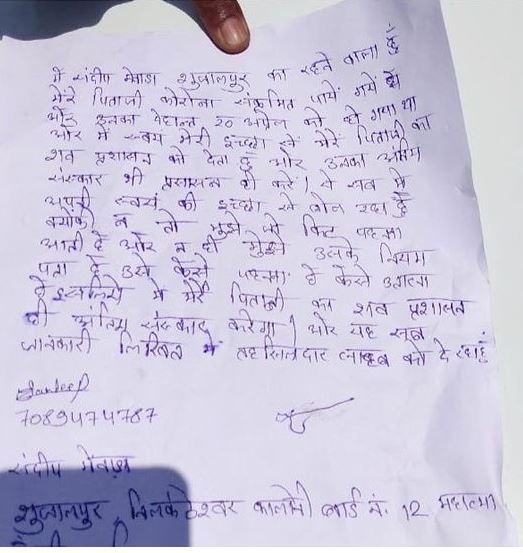 मैं संदीप मेवाडा शुजालपुर का रहने वाला हूँ
मेरे पिताजी कोरोना संक्रमित पाये गये थे
और इनका देहान्त 20 अप्रेल को हो गया था
और में स्वयं मेरी इच्छा से मेरे पिताजी का
शव प्रशासन को देता हूँ और उनका अंतिम
संस्कार भी प्रसासन ही करे। ये सब में
अपनी स्वयं की इच्छा से बोल रहा हूँ
क्योंकी न तो मुझे पी किट पहन्ना
आती है और न ही मुझे उसके नियम
पता है उसे कैसे पहन्ना है कैसे उतारना
है इसलिये में मेरे पिताजी का शव प्रशासन
ही अंतिम संस्कार करेगा। और यह सब
जानकारी लिखित में तहसिलदार साहब को दे रहा हूं
Sandeep
7089474787
संदीप मेवाडा
शुजालपुर, निलकंठेश्वर कालोनी वार्ड नं. 12 महात्मा